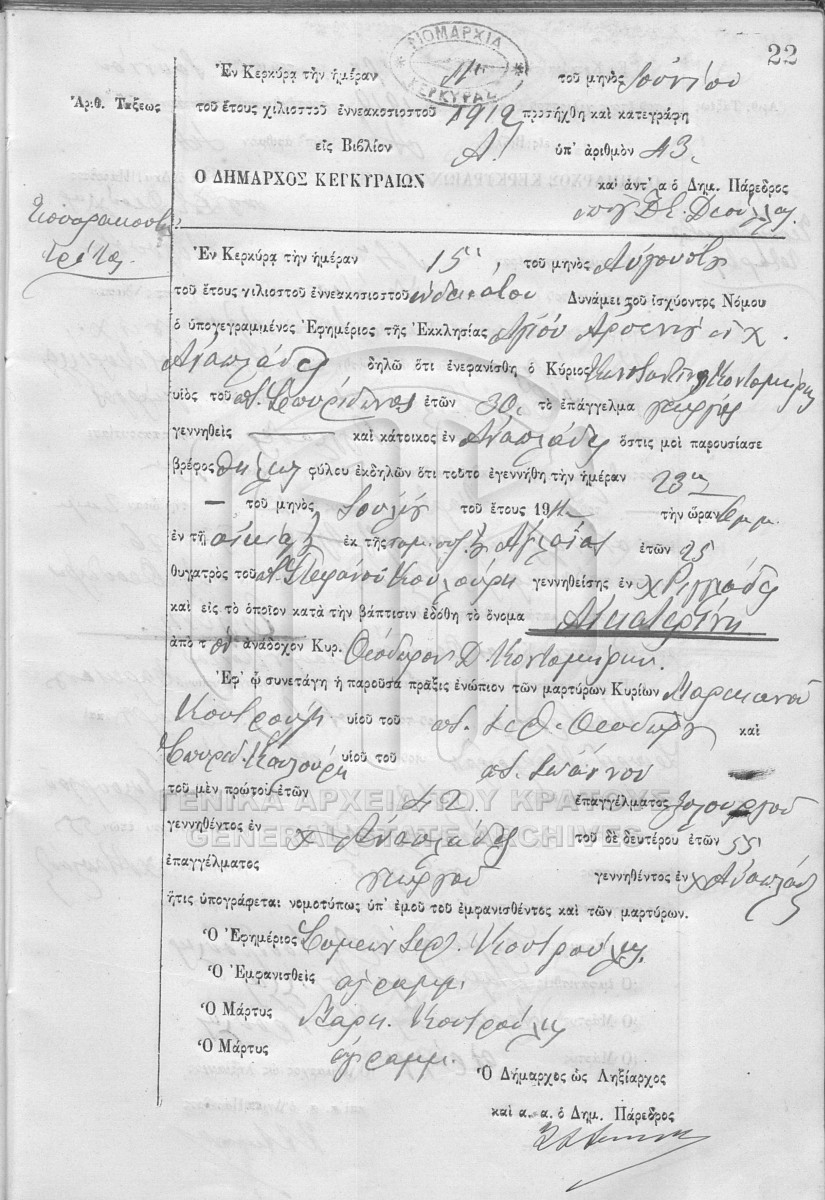 22
ΝΟΜΑΡΧΙΑ ΚΕΡΚΥΡΑΣ
Ἐν Κερκύρᾳ τὴν ἡμέραν 11 τοῦ μηνὸς Ἰουνίου
Ἀριθ. Τάξεως
τοῦ ἔτους χιλιοστοῦ ἐννεακοσιοστοῦ 1912 προσήχθη καὶ κατεγράφη
εἰς Βιβλίον Α' ὑπ' ἀριθμὸν 43.
Ο ΔΗΜΑΡΧΟΣ ΚΕΓΚΥΡΑΙΩΝ καὶ ἀντ' α ὁ Δημ. Πάρεδρος
Τεσσαρακοστὴ
τρίτη.
Ἐν Κερκύρᾳ τὴν ἡμέραν 15 τοῦ μηνὸς Αὐγούστου
τοῦ ἔτους χιλιοστοῦ ἐννεακοσιοστοῦ ἑνδεκάτου Δυνάμει τοῦ ἰσχύοντος Νόμου
ὁ ὑπογεγραμμένος Ἐφημέριος τῆς Ἐκκλησίας Ἁγίου Ἀρσενίου χ.
Ἀναπλάδες δηλῶ ὅτι ἐνεφανίσθη ὁ Κύριος Κωνσταντῖνος Κονταμίρης
υἱὸς τοῦ ποτ. Σπυρίδωνος ἐτῶν 30. τὸ ἐπάγγελμα γεωργός
γεννηθεὶς καὶ κάτοικος ἐν Ἀναπλάδες ὅστις μοὶ παρουσίασε
βρέφος θήλεος φύλου ἐκδηλῶν ὅτι τοῦτο ἐγεννήθη τὴν ἡμέραν 23ην
— τοῦ μηνὸς Ἰουλίου τοῦ ἔτους 1911 τὴν ὥραν μμ.
ἐν τῇ οἰκίᾳ ἐκ τῆς νομ. συζ. Ἀγλαΐας ἐτῶν 25
θυγατρὸς τοῦ ποτ. Στεφάνου Κουλούρη γεννηθείσης ἐν χ Ριγγλάδες
καὶ εἰς τὸ ὁποῖον κατὰ τὴν βάπτισιν ἐδόθη τὸ ὄνομα Αἰκατερίνη
ἀπὸ τὸν ἀνάδοχον Κυρ. Θεόδωρον Δ. Κονταμίρην.
Ἐφ' ᾧ συνετάγη ἡ παροῦσα πρᾶξις ἐνώπιον τῶν μαρτύρων Κυρίων Μαρκιανοῦ
Κουτρούλη υἱοῦ τοῦ ποτ. Ἱερ. Θεοδώρου καὶ
Σπυρίδ. Κουλούρη υἱοῦ τοῦ ποτ. Ἰωάννου
τοῦ μὲν πρώτου ἐτῶν 42 ἐπαγγέλματος ξυλουργοῦ
ΓΕΝΙΚΑ ΑΡΧΕΙΑ ΤΟΥ ΚΡΑΤΟΥΣ
γεννηθέντος ἐν χ Ἀναπλάδες τοῦ δὲ δευτέρου ἐτῶν 55
GENERAL STATE ARCHIVES
ἐπαγγέλματος γεωργοῦ γεννηθέντος ἐν χ Ἀναπλάδες
ἥτις ὑπογράφεται νομοτύπως ὑπ' ἐμοῦ τοῦ ἐμφανισθέντος καὶ τῶν μαρτύρων.
Ὁ Ἐφημέριος Συμεὼν Ἱερ. Κουτρούλης
Ὁ Ἐμφανισθεὶς ἀγράμμ.
Ὁ Μάρτυς Μαρκ. Κουτρούλης
Ὁ Μάρτυς ἀγράμμ.
Ὁ Δήμαρχος ὡς Ληξίαρχος
καὶ α. α. ὁ Δημ. Πάρεδρος